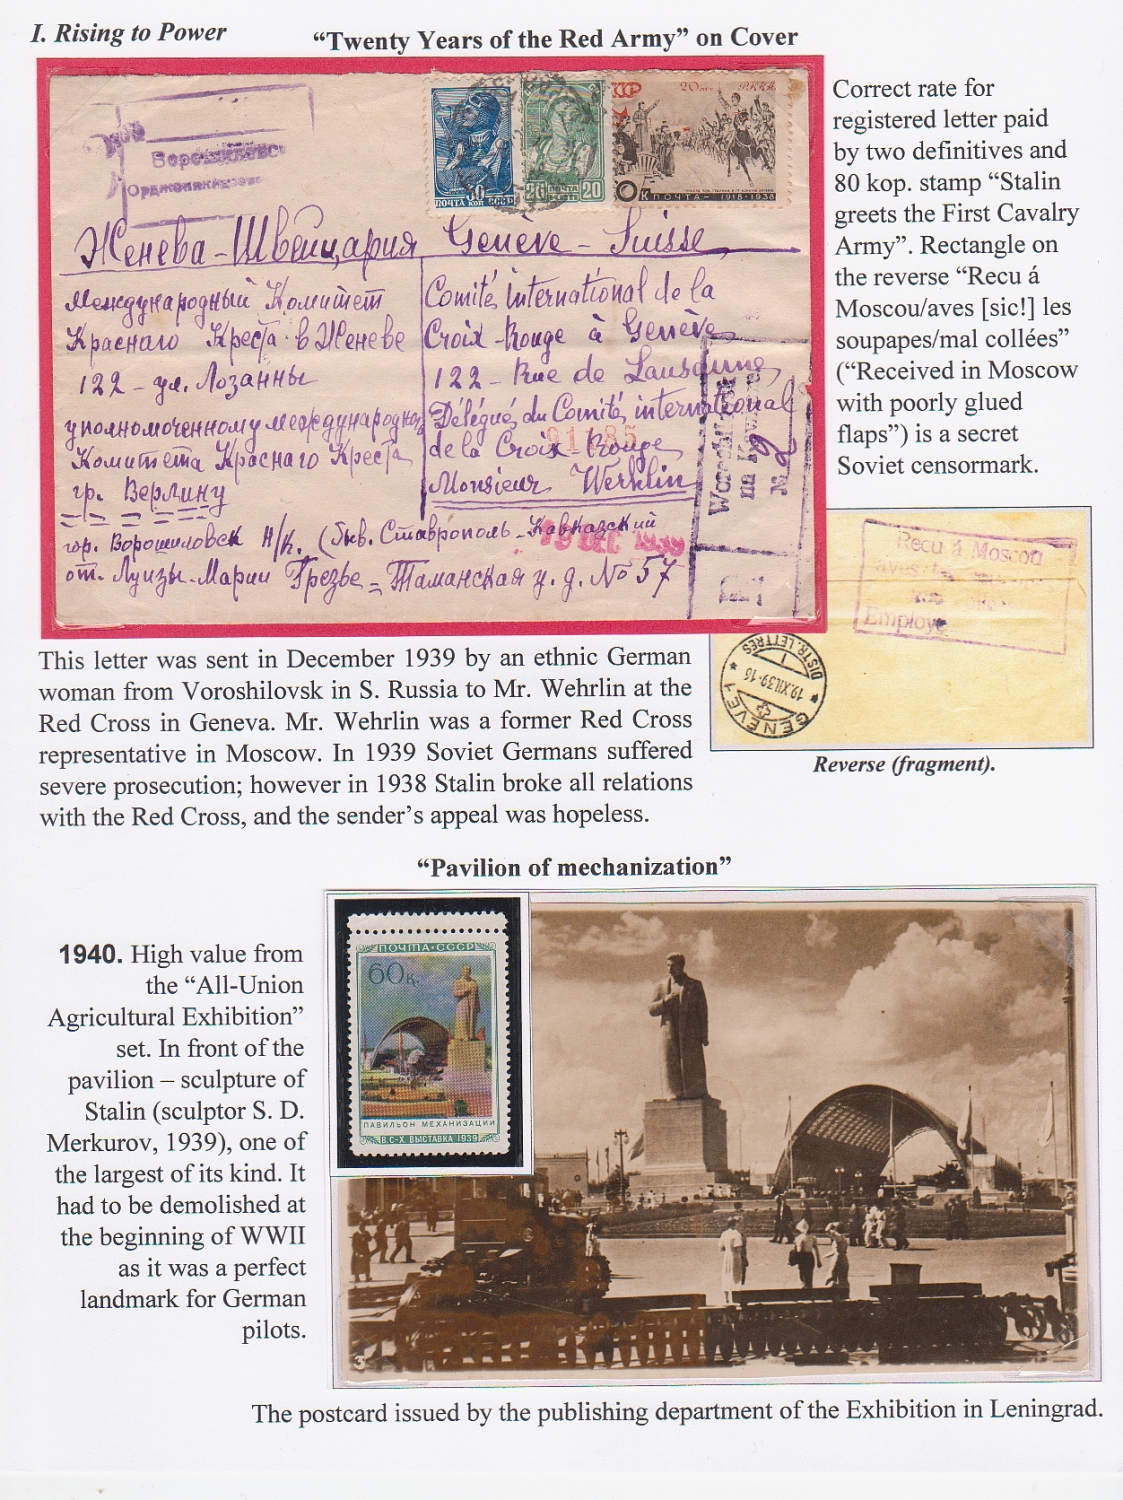 I. Rising to Power
“Twenty Years of the Red Army” on Cover
Correct rate for
registered letter paid
by two definitives and
80 kop. stamp “Stalin
greets the First Cavalry
Army”. Rectangle on
the reverse “Recu á
Moscou/aves [sic!] les
soupapes/mal collées”
(“Received in Moscow
with poorly glued
flaps”) is a secret
Soviet censormark.
ПОЧТА КОП СССР
ПОЧТА
20
20
20 лет РККА
ПОЧТА 1918-1938
Женева-Швейцария Genève-Suisse
Международный Комитет
Краснаго Креста в Женеве
122 - ул. Лозанны
уполномоченному международнаг
Комитета Краснаго Креста
гр. Верлину
Comité international de la
Croix-Rouge à Genève
122 - Rue de Lausanne
Délégué du Comité international
de la Croix Rouge
Monsieur Werhlin
19 DEC 1939
гор. Ворошиловск Н/К. (быв. Ставрополь-Кавказский
от. Луизы-Марии Грезье = Таманская у. д. № 57
Recu á Moscou
Employe
DISTR. LETTRES
19.XII.39-16
GENÈVE 1
Reverse (fragment).
This letter was sent in December 1939 by an ethnic German
woman from Voroshilovsk in S. Russia to Mr. Wehrlin at the
Red Cross in Geneva. Mr. Wehrlin was a former Red Cross
representative in Moscow. In 1939 Soviet Germans suffered
severe prosecution; however in 1938 Stalin broke all relations
with the Red Cross, and the sender’s appeal was hopeless.
“Pavilion of mechanization”
1940. High value from
the “All-Union
Agricultural Exhibition”
set. In front of the
pavilion – sculpture of
Stalin (sculptor S. D.
Merkurov, 1939), one of
the largest of its kind. It
had to be demolished at
the beginning of WWII
as it was a perfect
landmark for German
pilots.
ПОЧТА·СССР
60к.
ПАВИЛЬОН МЕХАНИЗАЦИИ
В.С-Х. ВЫСТАВКА 1939
3
The postcard issued by the publishing department of the Exhibition in Leningrad.